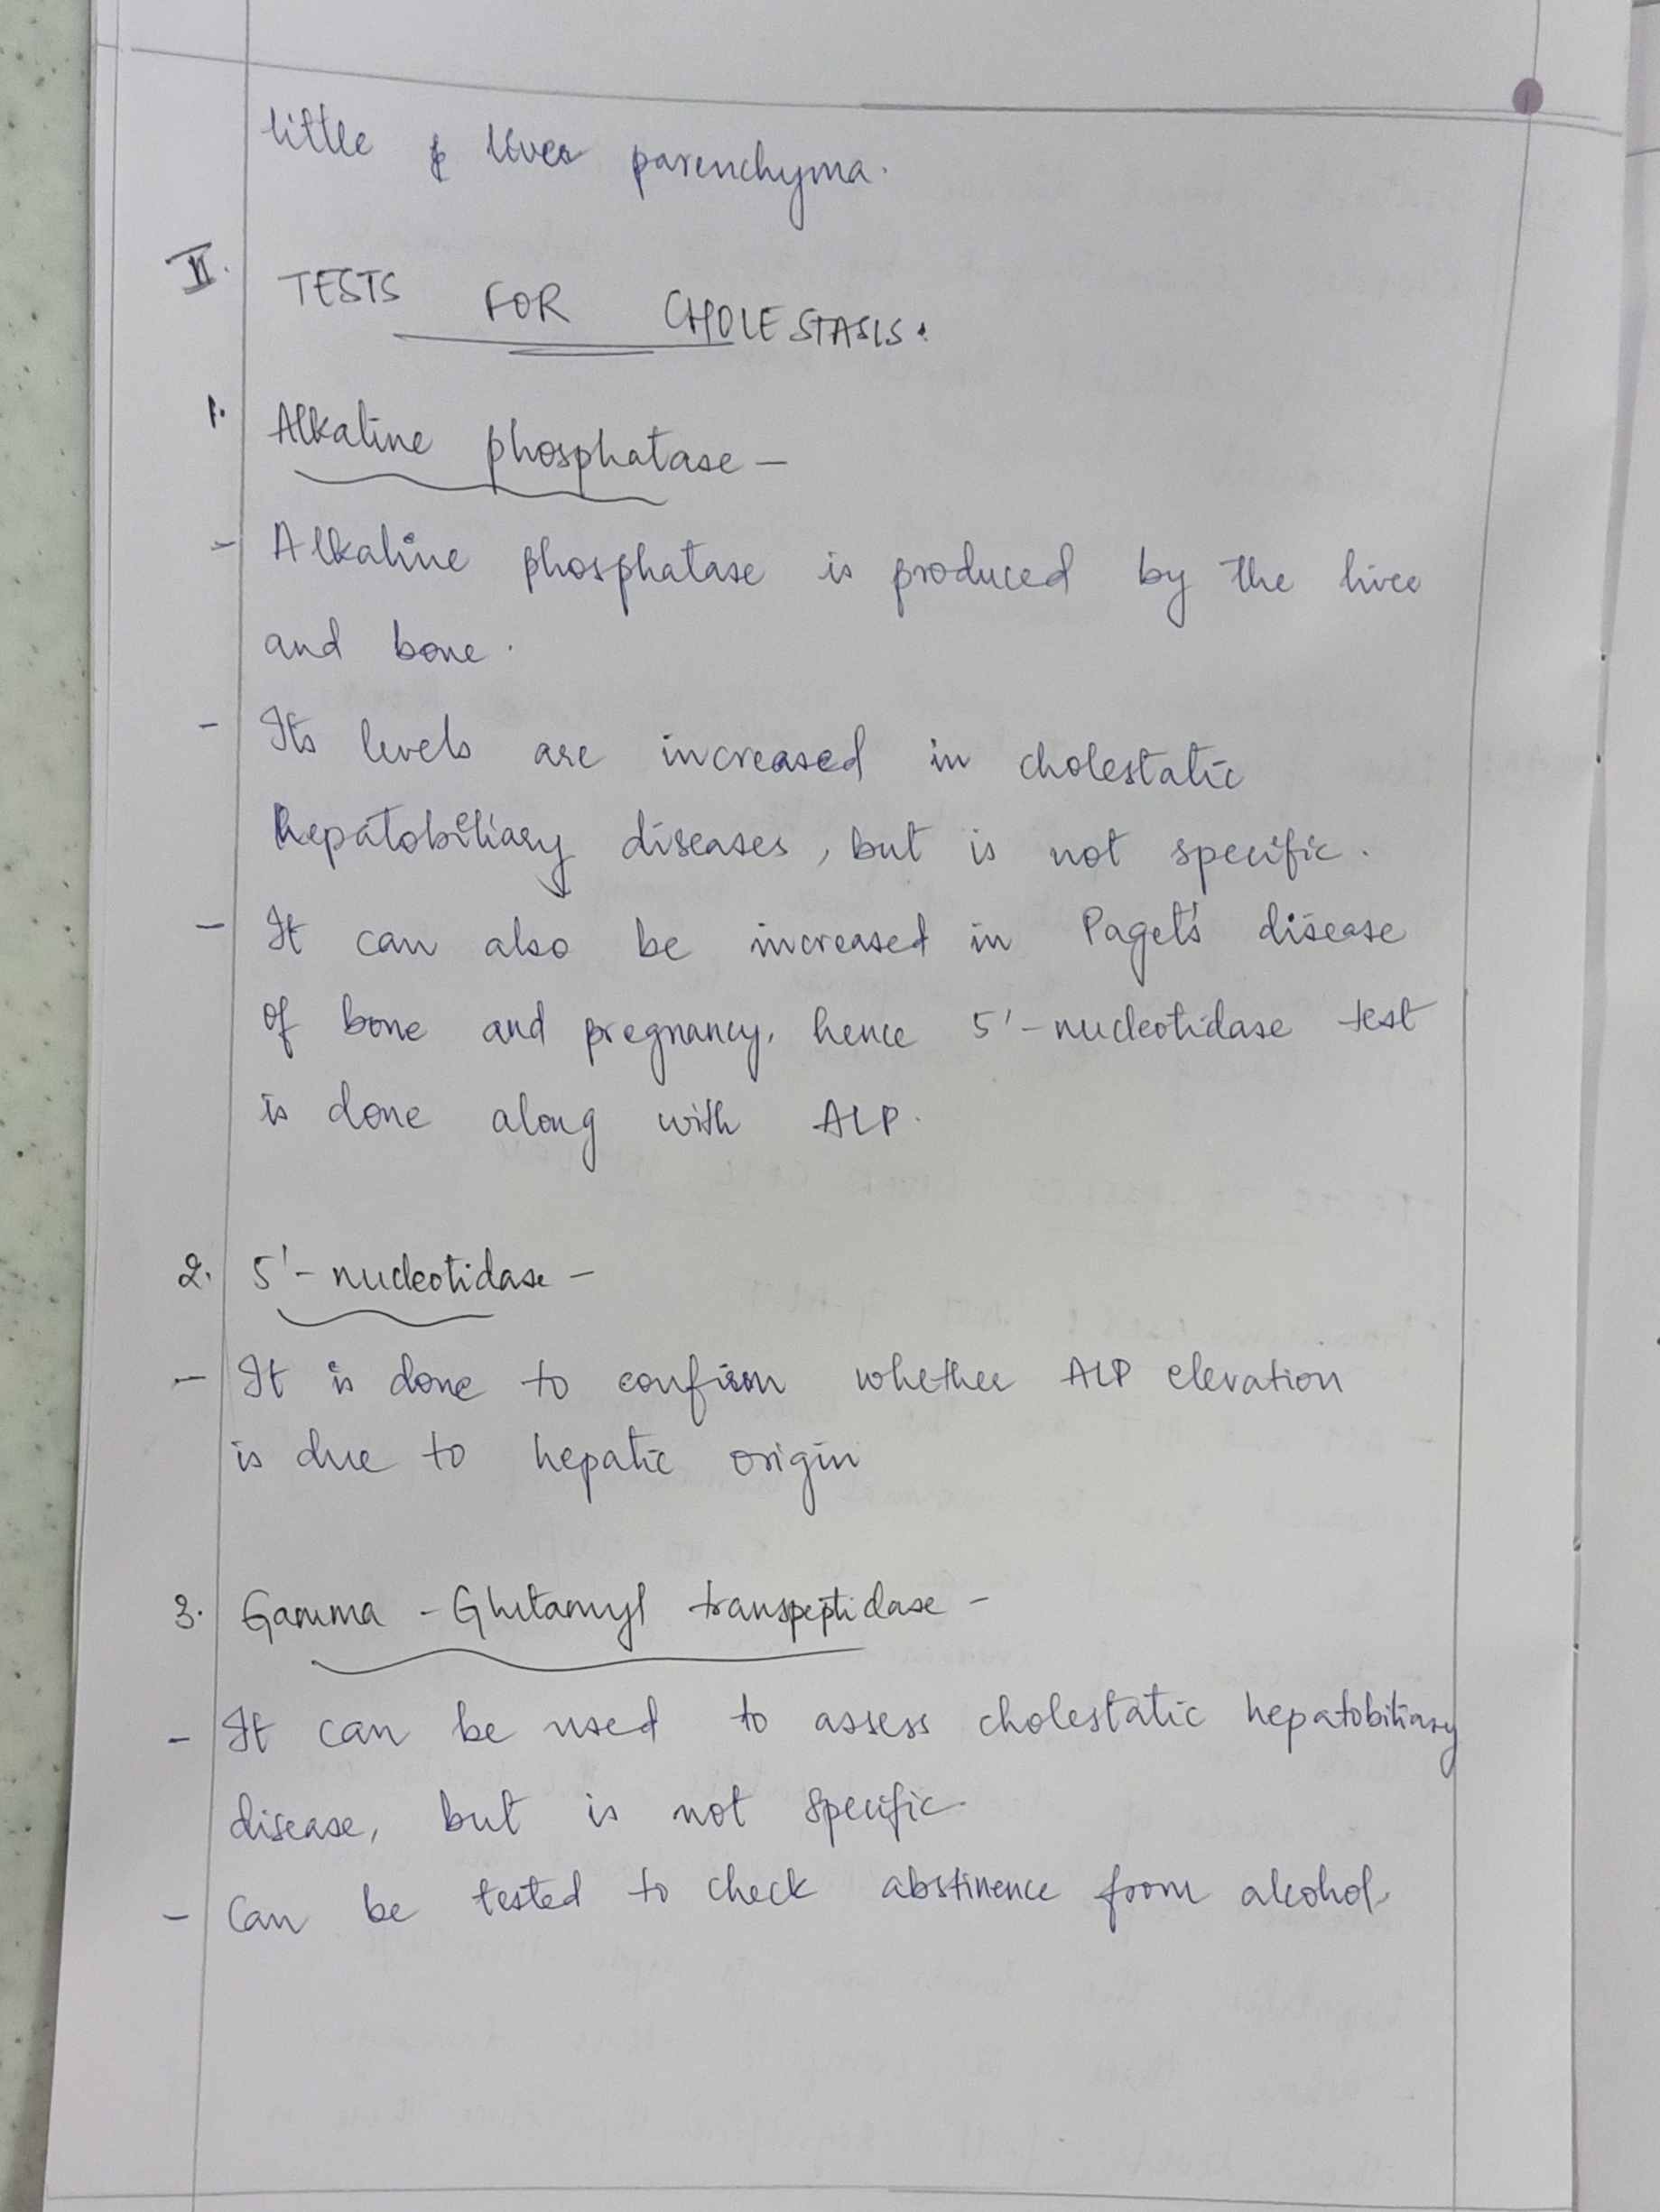 little of liver parenchyma.
II. TESTS FOR CHOLESTASIS.
1. Alkaline phosphatase -
- Alkaline phosphatase is produced by the liver
and bone.
- Its levels are increased in cholestatic
hepatobiliary diseases, but is not specific.
- It can also be increased in Paget's disease
of bone and pregnancy, hence 5'-nucleotidase test
is done along with ALP.
2. 5'-nucleotidase -
- It is done to confirm whether ALP elevation
is due to hepatic origin
3. Gamma - Glutamyl transpeptidase -
- It can be used to assess cholestatic hepatobiliary
disease, but is not specific.
- Can be tested to check abstinence from alcohol.